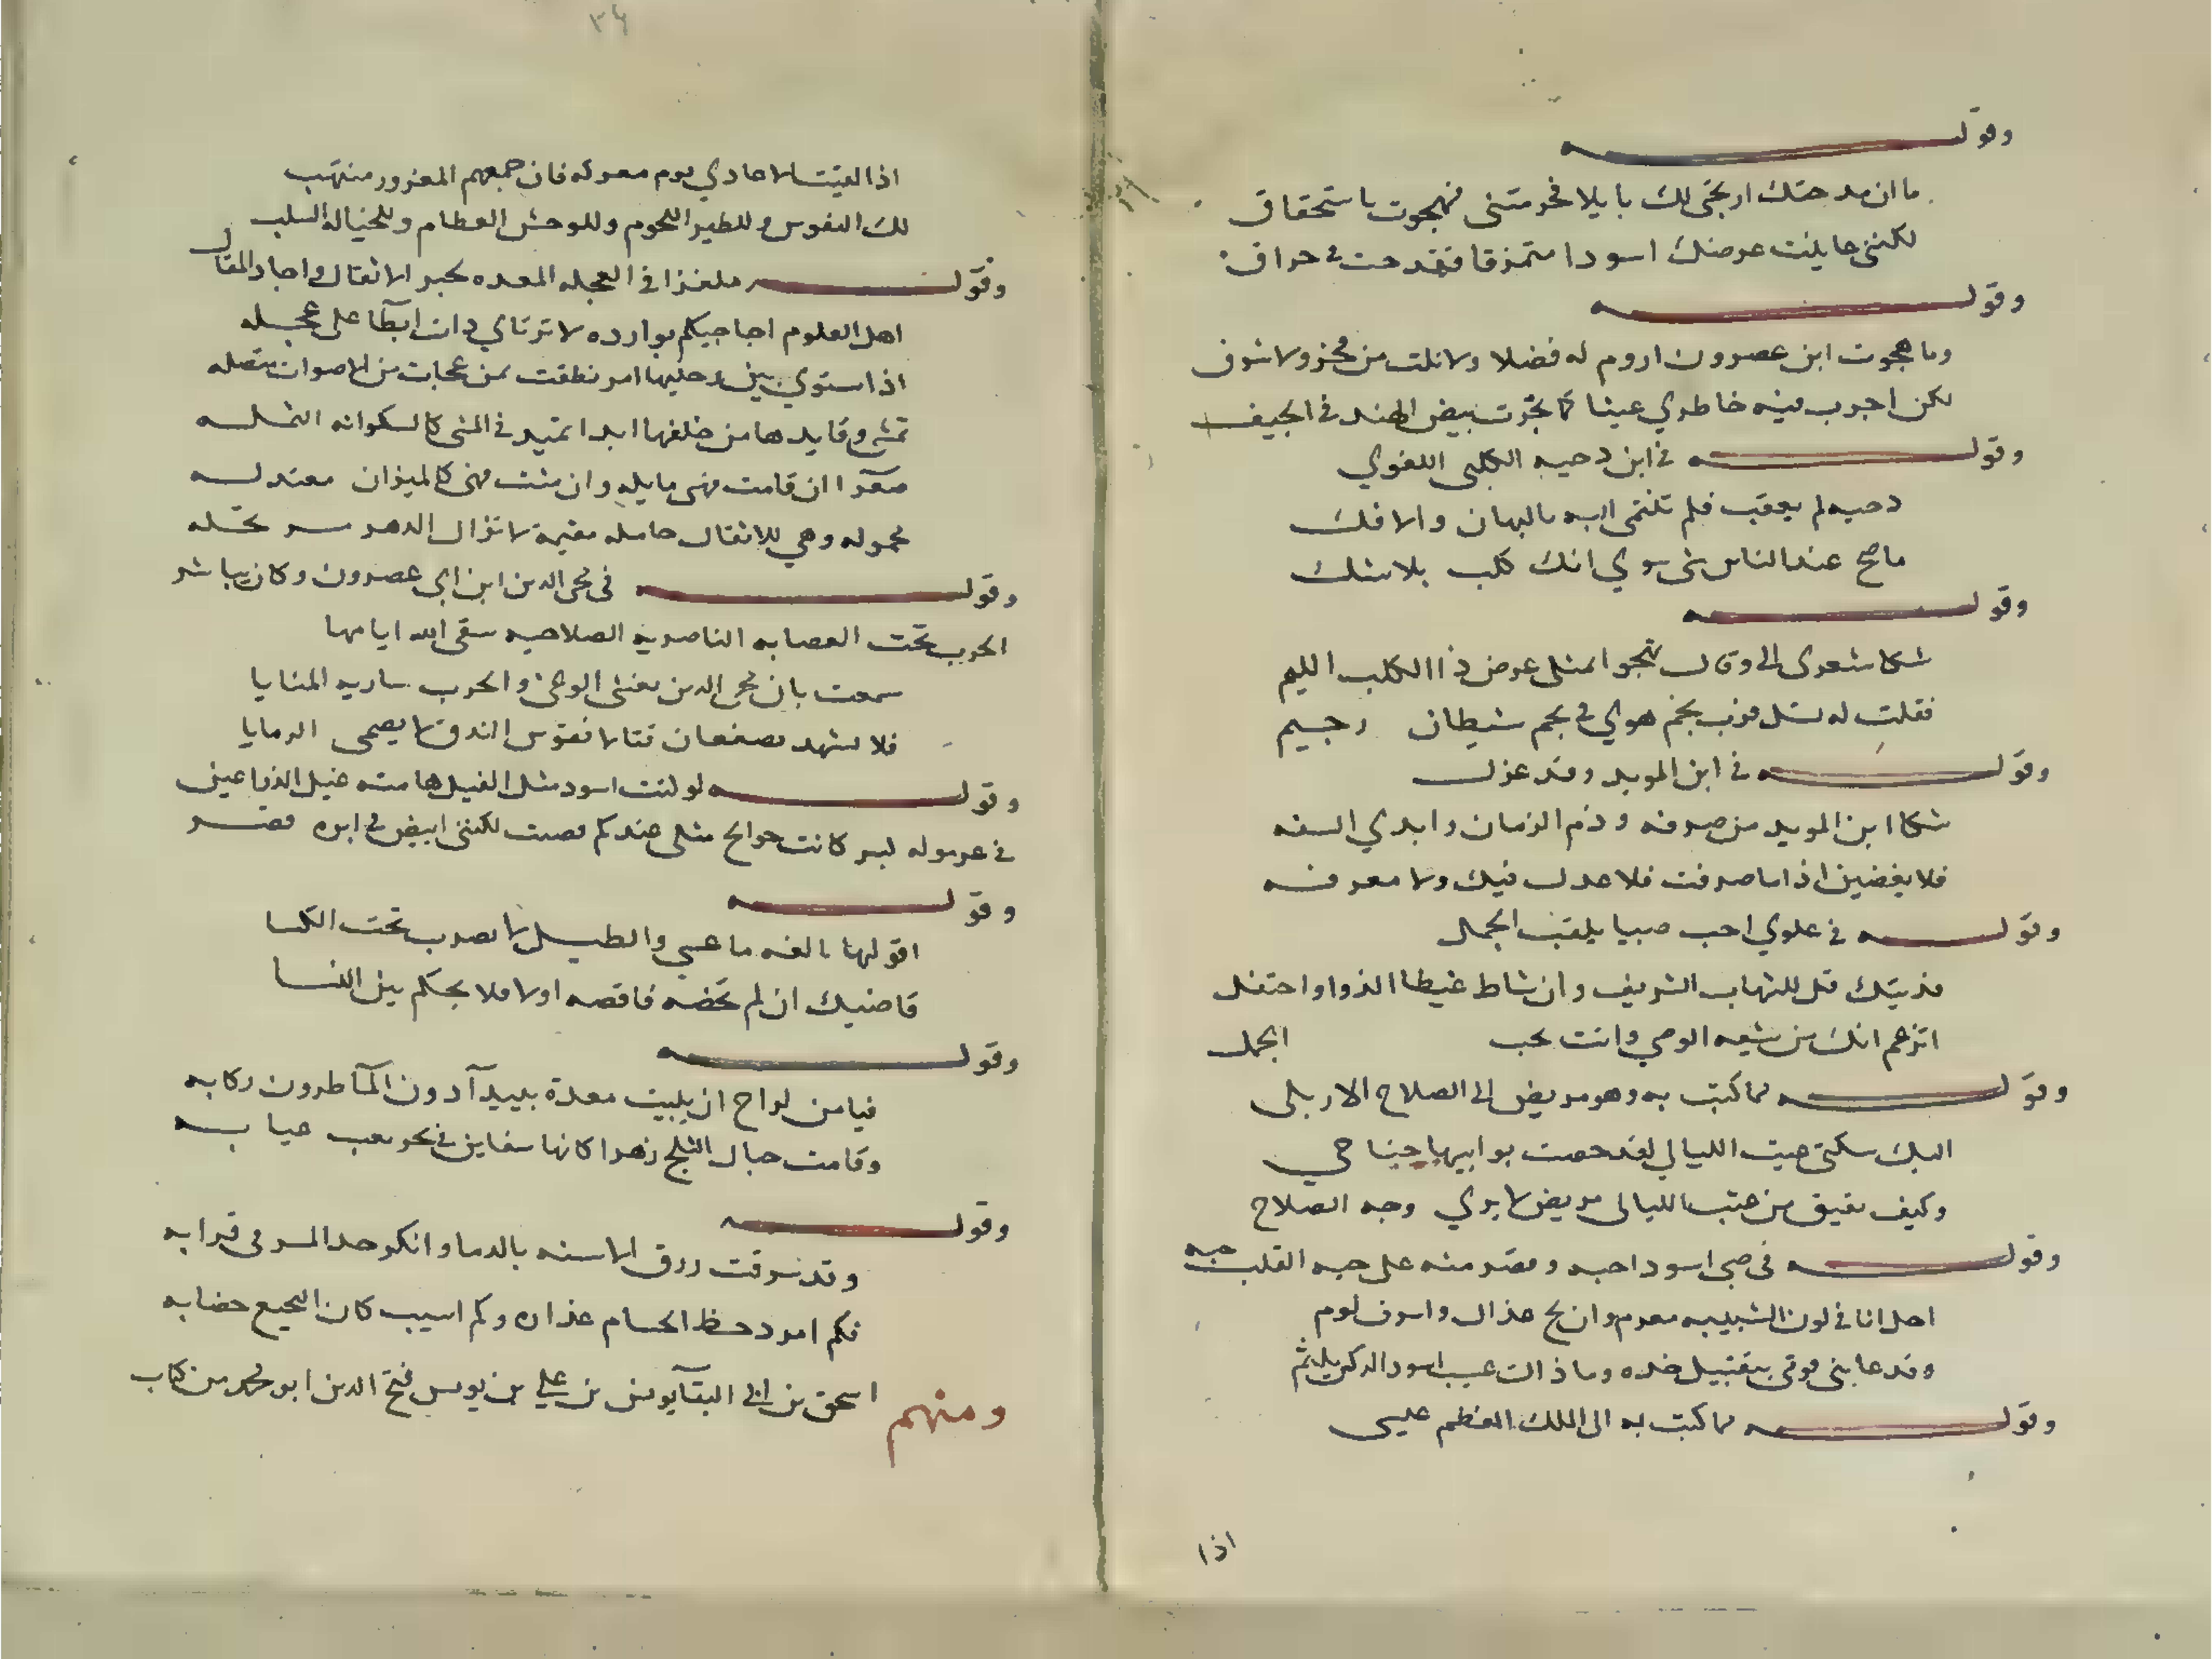 وقوله
ما ان مدحتك ارتجى لك نايلا فحرمتنى فهجوت باستحقاق
لكننى عاينت عرضك اسودا متمزقا فقدحت فى حراق
وقوله
وما هجوت ابن عصرون اروم له فضلا ولا نلت من فخر ولا شرف
لكن اجرب فيه خاطري عبثا كما تجرب بيض الهند فى الجيف
وقوله فى ابن دحيه الكلبى اللغوي
دحيه لم يعقب فلم تنتمى اليه بالبهتان والافك
ما صح عند الناس شى سوي انك كلب بلا شك
وقوله
شكا شعرى الى وقال تهجو بمثلى عرض ذا الكلب اللئيم
فقلت له تسل فرب نجم هوي فى نجم شيطان رجيم
وقوله فى ابن المويد وقد عزل
شكا ابن المويد من صرفه وذم الزمان وابدي السفه
فلا تغضبن اذا ما صرفت فلا عدل فيك ولا معرفه
وقوله فى علوي احب صبيا يلقب الجمل
فديتك قل للشهاب الشريف وان شاط غيظا الذوا واحتفل
اتزعم انك من شيعه الوصي وانت تحب الجمل
وقوله مما كتب به وهو مريض الى الصلاح الاربلى
اليك شكى صت الليالي لقد حصت نوايبها جناحي
وكيف يفيق من عتب الليالى مريض لا يري وجه الصلاح
وقوله فى صبى اسود احبه وقصر منه على حبه القلب حبه
احل انا فى لون الشبيبه مغرم وان لج عذال واسرف لوم
وقد عابنى قومى بتقبيل خده وما ذاك عيب اسود الركن يلثم
وقوله مما كتب به الى الملك المعظم عليى
اذا
٣٤
اذا لقيت الاعادي يوم معركه فان جمعهم المغرور منتهب
لك النفوس وللطير اللحوم وللوحش العظام وللخياله السلب
وقوله ملغزا فى العجله المعده لجر الاثقال واجاد المقال
اهل العلوم احاجيكم بوارده لا ترتاي ذات ابطا على عجله
اذا استوي بين رحليها امر نطقت عن عجبات من الاصوات متصله
تمشى وقايدها من خلفها ابدا تميد فى المشى كالسكرانه الثمله
صعرا ان قامت فهى مايله وان مشت فهى كالميزان معتدله
محموله وهي للاثقال حامله مقيمة لا تزال الدهر مرتحله
وقوله فى محى الدين ابن ابى عصرون وكان يباشر
الحرب تحت العصابه الناصريه الصلاحيه سقى الله ايامها
سمعت بان محى الدين يغشى الوغى والحرب ساريه المنايا
فلا تشهد بصفعان قتالا فقوس الندف لا يصمى الرمايا
وقوله لو كنت اسود مثل الفيل هامته عبل الذراعين
فى غرموله كبر كانت حوايج مثلى عندكم قضيت لكننى ابيض فى ايره قصر
وقوله
اقولها بالغه ما عسي والطبل لا يضرب تحت الكسا
قاضيك ان لم تخصه فاقصه اولا فلا يحكم بين النسا
وقوله
فيا من لراج ان يبيت مغدة ببيدآ دون الماطرون ركابه
وقامت جبال الثلج زهرا كانها سفاين فى بحر يعب عبابه
وقوله
وقد شرقت زرق الاسنه بالدما وانكر حد المشرفى قرابه
فكم امرد خط الحسام عذاره وكم اشيب كان النجيع خضابه
ومنهم اسحق بن ابى البقآ يوسن بن علي بن يونس فتح الدين ابو محمد من كتاب